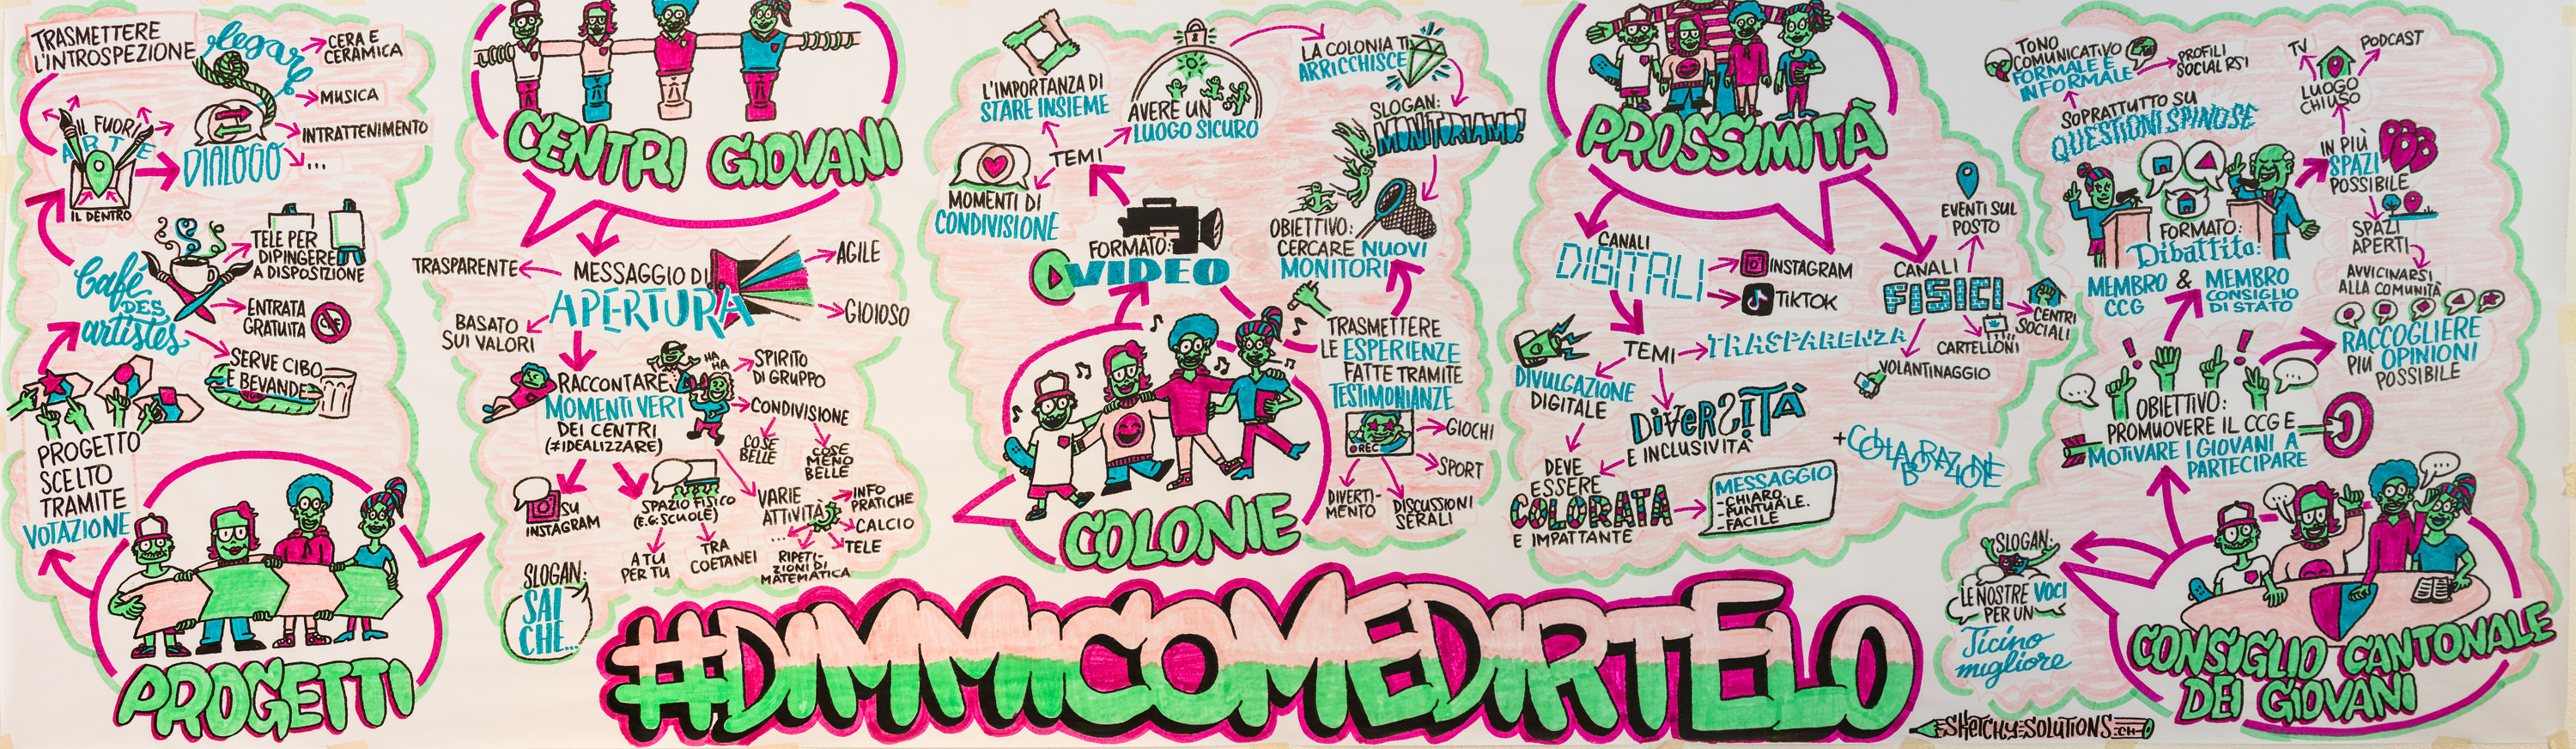 TRASMETTERE
L'INTROSPEZIONE
legare
CERA E
CERAMICA
MUSICA
INTRATTENIMENTO
...
DIALOGO
IL FUORI
ARTE
IL DENTRO
Café
DES
artistes
TELE PER
DIPINGERE
A DISPOSIZIONE
ENTRATA
GRATUITA
CHF
SERVE CIBO
E BEVANDE
PROGETTO
SCELTO
TRAMITE
VOTAZIONE
PROGETTI
CENTRI GIOVANI
TRASPARENTE
MESSAGGIO DI
APERTURA
AGILE
GIOIOSO
BASATO
SUI VALORI
RACCONTARE
MOMENTI VERI
DEI CENTRI
(≠IDEALIZZARE)
HA
HA
SPIRITO
DI GRUPPO
CONDIVISIONE
COSE
BELLE
COSE
MENO
BELLE
SU
INSTAGRAM
SPAZIO FISICO
(E.G: SCUOLE)
A TU
PER TU
TRA
COETANEI
VARIE
ATTIVITÀ
INFO
PRATICHE
CALCIO
TELE
RIPETI-
ZIONI DI
MATEMATICA
...
SLOGAN:
SAI
CHE...
L'IMPORTANZA DI
STARE INSIEME
AVERE UN
LUOGO SICURO
TEMI
MOMENTI DI
CONDIVISIONE
FORMATO:
VIDEO
LA COLONIA TI
ARRICCHISCE
SLOGAN:
MONITORIAMO!
OBIETTIVO:
CERCARE NUOVI
MONITORI
TRASMETTERE
LE ESPERIENZE
FATTE TRAMITE
TESTIMONIANZE
REC
GIOCHI
SPORT
DIVERTI-
MENTO
DISCUSSIONI
SERALI
COLONIE
PROSSIMITÀ
CANALI
DIGITALI
INSTAGRAM
TIKTOK
TEMI
TRASPARENZA
DIVULGAZIONE
DIGITALE
DIVERSITÀ
E INCLUSIVITÀ
DEVE
ESSERE
COLORATA
E IMPATTANTE
MESSAGGIO
-CHIARO.
-PUNTUALE.
-FACILE
CANALI
FISICI
EVENTI SUL
POSTO
CENTRI
SOCIALI
CARTELLONI
VOLANTINAGGIO
+COLLABORAZIONE
TONO
COMUNICATIVO
FORMALE E
INFORMALE
PROFILI
SOCIAL RSI
SOPRATTUTTO SU
QUESTIONI SPINOSE
FORMATO:
Dibattito:
MEMBRO
CCG
&
MEMBRO
CONSIGLIO
DI STATO
TV
PODCAST
LUOGO
CHIUSO
IN PIÙ
SPAZI
POSSIBILE
SPAZI
APERTI
AVVICINARSI
ALLA COMUNITÀ
RACCOGLIERE
PIÙ OPINIONI
POSSIBILE
OBIETTIVO:
PROMUOVERE IL CCG E
MOTIVARE I GIOVANI A
PARTECIPARE
SLOGAN:
LE NOSTRE VOCI
PER UN
Ticino
migliore
CONSIGLIO CANTONALE
DEI GIOVANI
#DIMMICOMEDIRTELO
SKETCHY-SOLUTIONS.CH